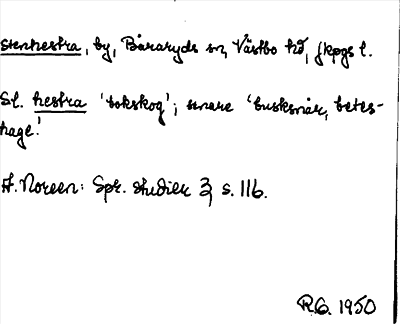 Stenhestra, by, Båraryds sn, Västbo hd, Jkpgs l.
Sl. hestra 'bokskog'; senare 'busksnår, betes-
hage'.
A. Noreen: Spr. studier 3 s. 116.
R.G. 1950